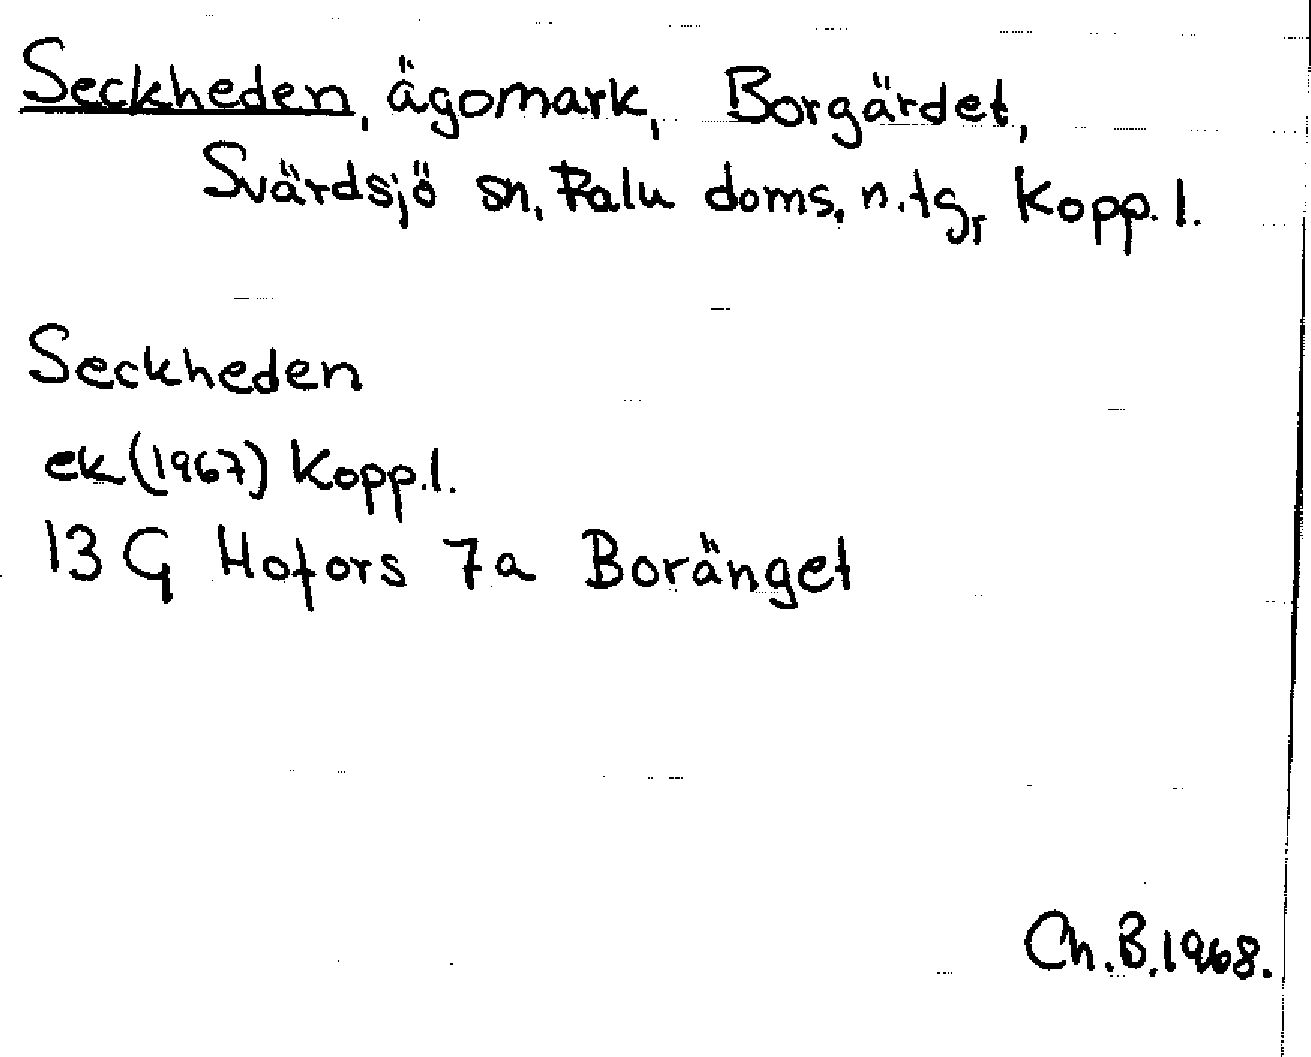 Seckheden, ägomark, Borgärdet,
Svärdsjö sn, Falu doms. n. tg, Kopp. l.
Seckheden
ek (1967) Kopp. l.
13 G Hofors 7a Boränget
Ch. B. 1968.